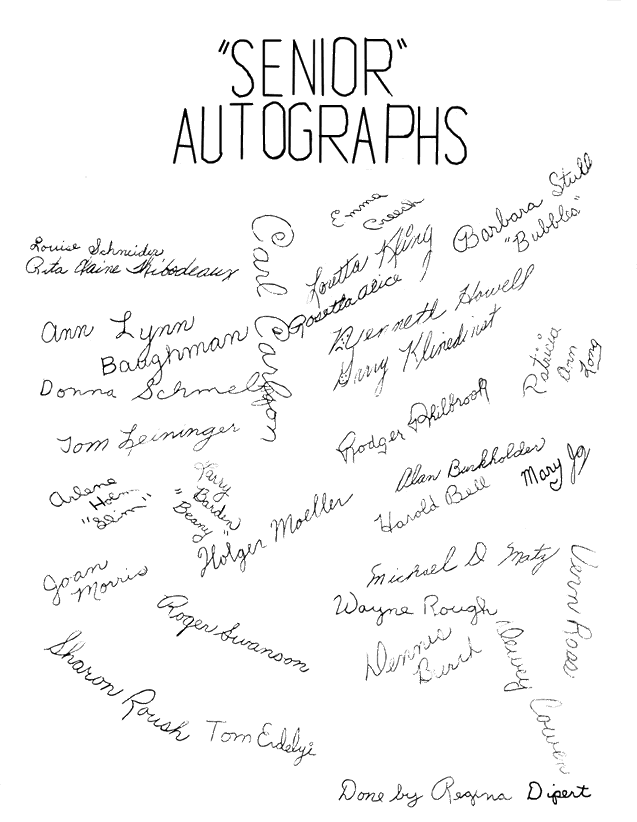 "SENIOR"
AUTOGRAPHS
Emma
Creech
Barbara Stull
"Bubbles"
Louise Schneider
Rita Elaine Thibodeaux
Carl Carlson
Loretta Kling
Rosetta Alice
Kenneth Howell
Garry Klinedinst
Ann Lynn
Baughman
Donna Schmelz
Patricia
Ann
Long
Tom Leininger
Rodger Philbrook
Alan Burkholder
Harold Bell
Mary Jo
Arlene
Holm
"Slim"
Barden
"Beany"
Holger Moeller
Michael D Matz
Joan
Morris
Wayne Rough
Vern Rose
Roger Swanson
Dennis
Dewey Cowen
Sharon Roush
Tom Erdelyi
Done by Regina Dipert